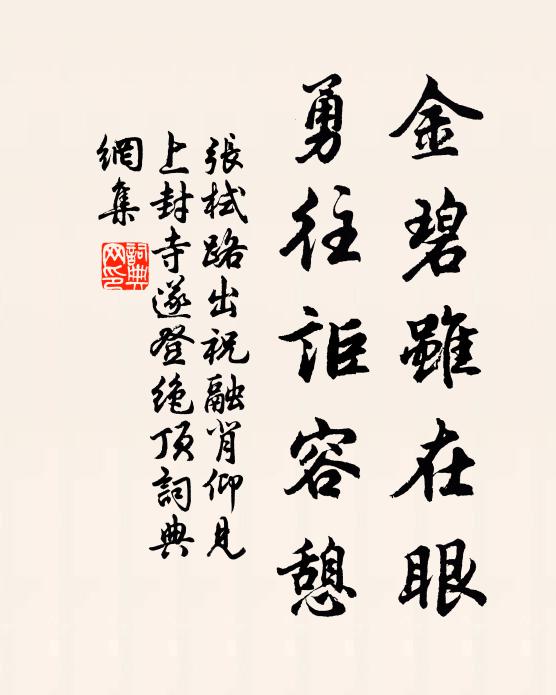 金碧雖在眼
勇往詎容憩
張栻路出祝融背仰見
上封寺遂登绝頂詞典
網集
詞典
网印